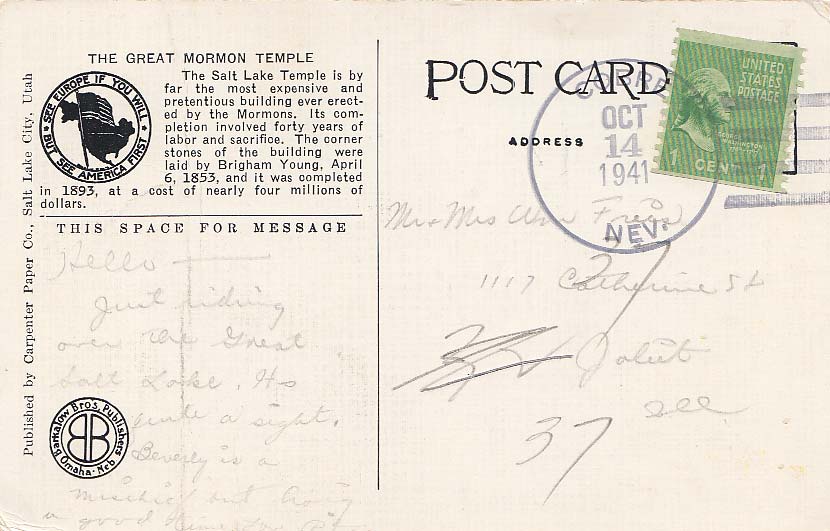 THE GREAT MORMON TEMPLE
SEE EUROPE IF YOU WILL
BUT SEE AMERICA FIRST
The Salt Lake Temple is by
far the most expensive and
pretentious building ever erect-
ed by the Mormons. Its com-
pletion involved forty years of
labor and sacrifice. The corner
stones of the building were
laid by Brigham Young, April
6, 1853, and it was completed
in 1893, at a cost of nearly four millions of
dollars.
THIS SPACE FOR MESSAGE
Hello
Just riding
over the Great
Salt Lake. Its
quite a sight.
Beverly is a
mischief but having
a good time
Published by Carpenter Paper Co., Salt Lake City, Utah
Barkalow Bros. Publishers
Omaha-Neb
B B
POST CARD
ADDRESS
COBRE
OCT
14
1941
NEV.
UNITED
STATES
POSTAGE
GEORGE
WASHINGTON
1 CENT 1
Mr & Mrs
1117 Catherine St
Joliet
Ill
37